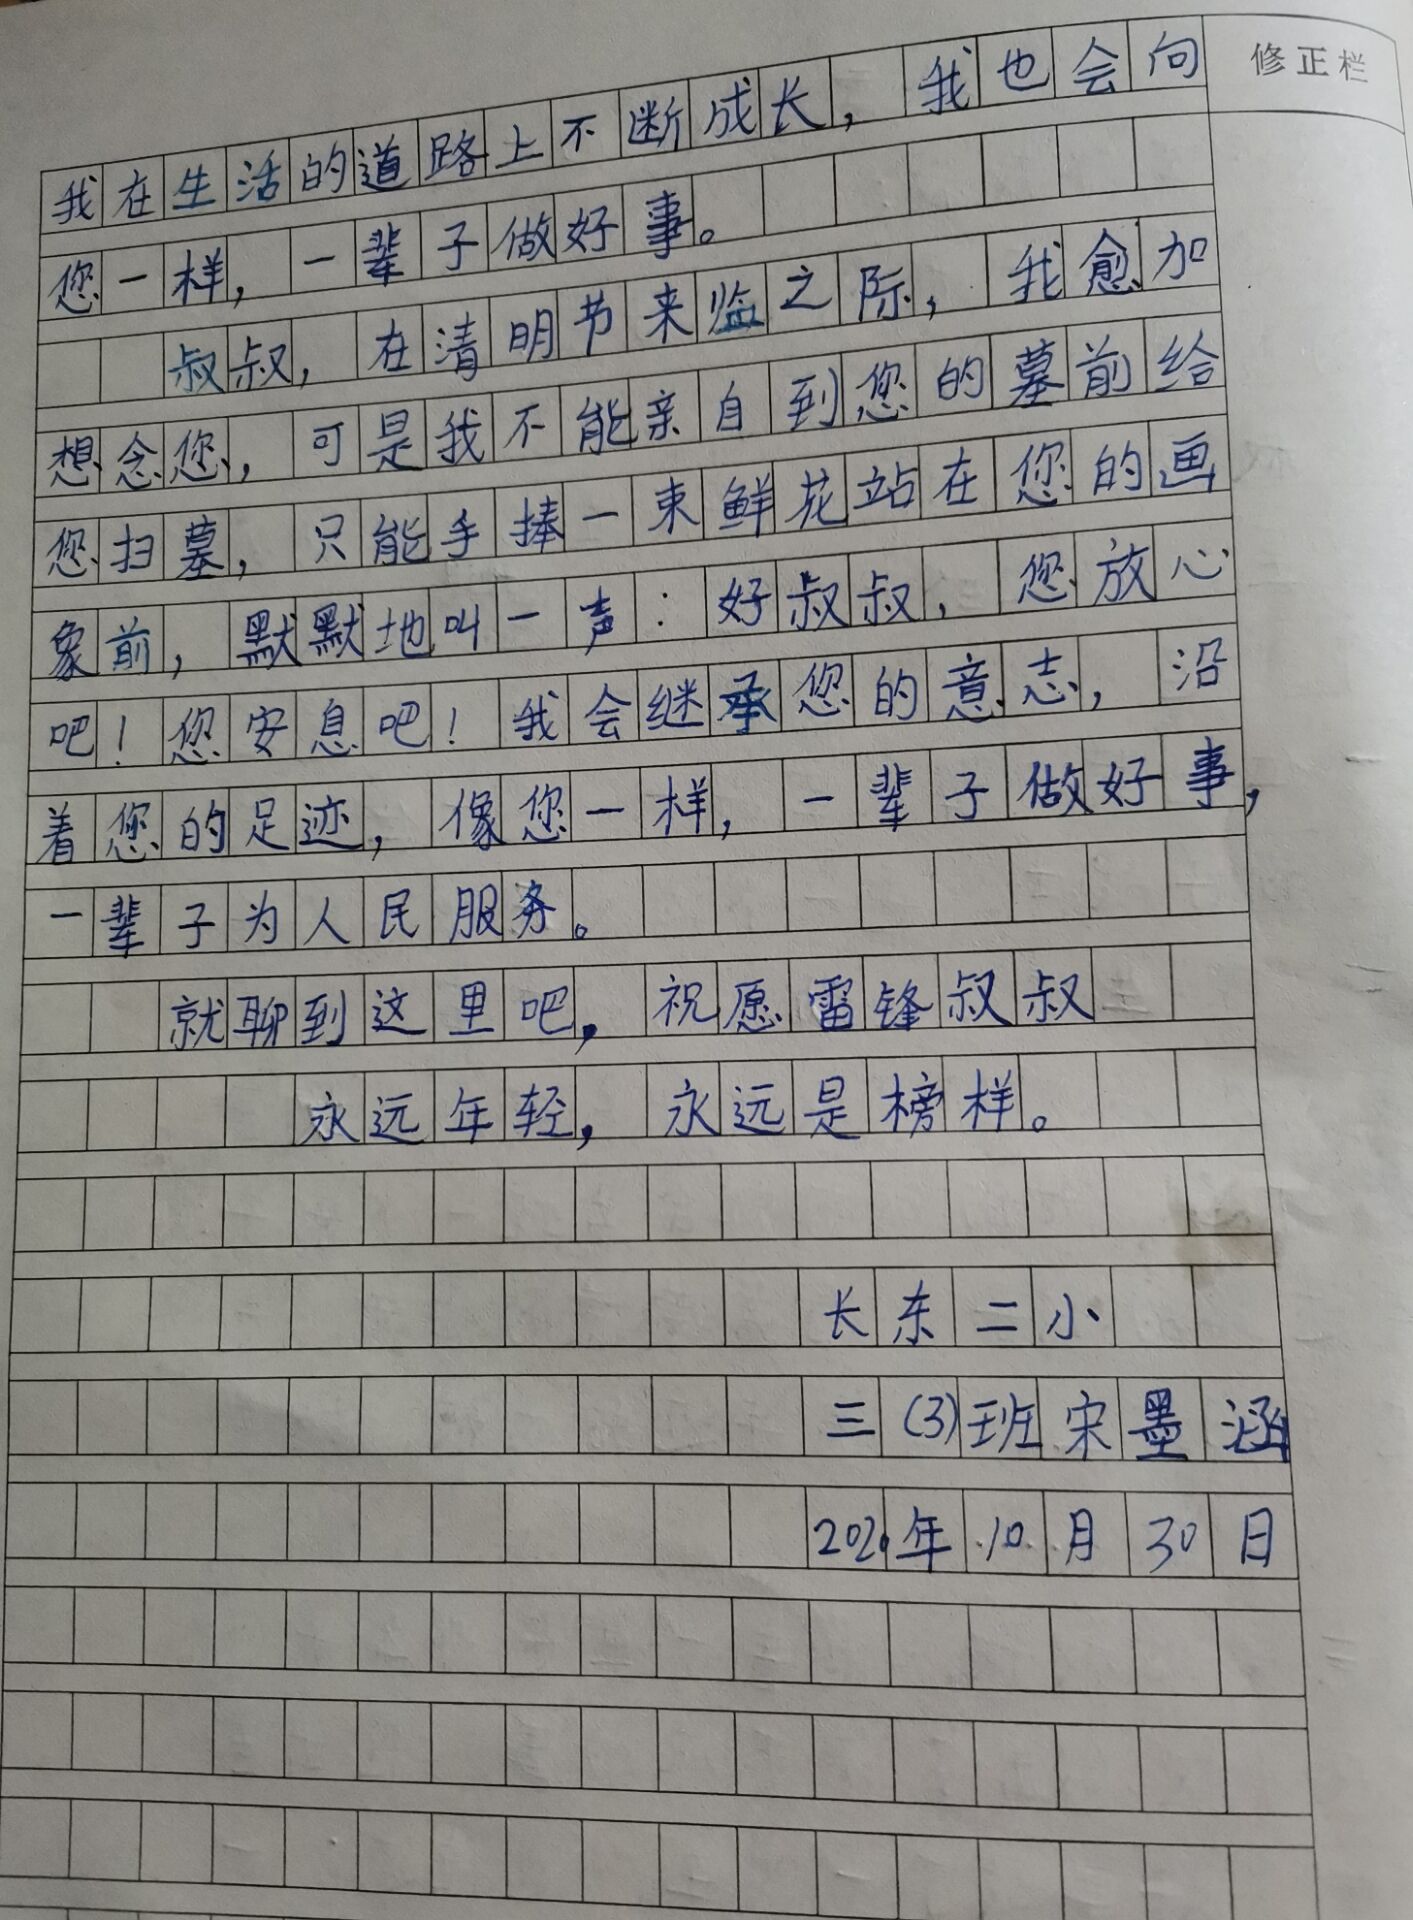 修正栏
我在生活的道路上不断成长，我也会向
您一样，一辈子做好事。
叔叔，在清明节来监之际，我愈加
想念您，可是我不能亲自到您的墓前给
您扫墓，只能手捧一束鲜花站在您的画
象前，默默地叫一声：好叔叔，您放心
吧！您安息吧！我会继承您的意志，沿
着您的足迹，像您一样，一辈子做好事，
一辈子为人民服务。
就聊到这里吧，祝愿雷锋叔叔
永远年轻，永远是榜样。
长东二小
三(3)班宋墨涵
2020年10月30日